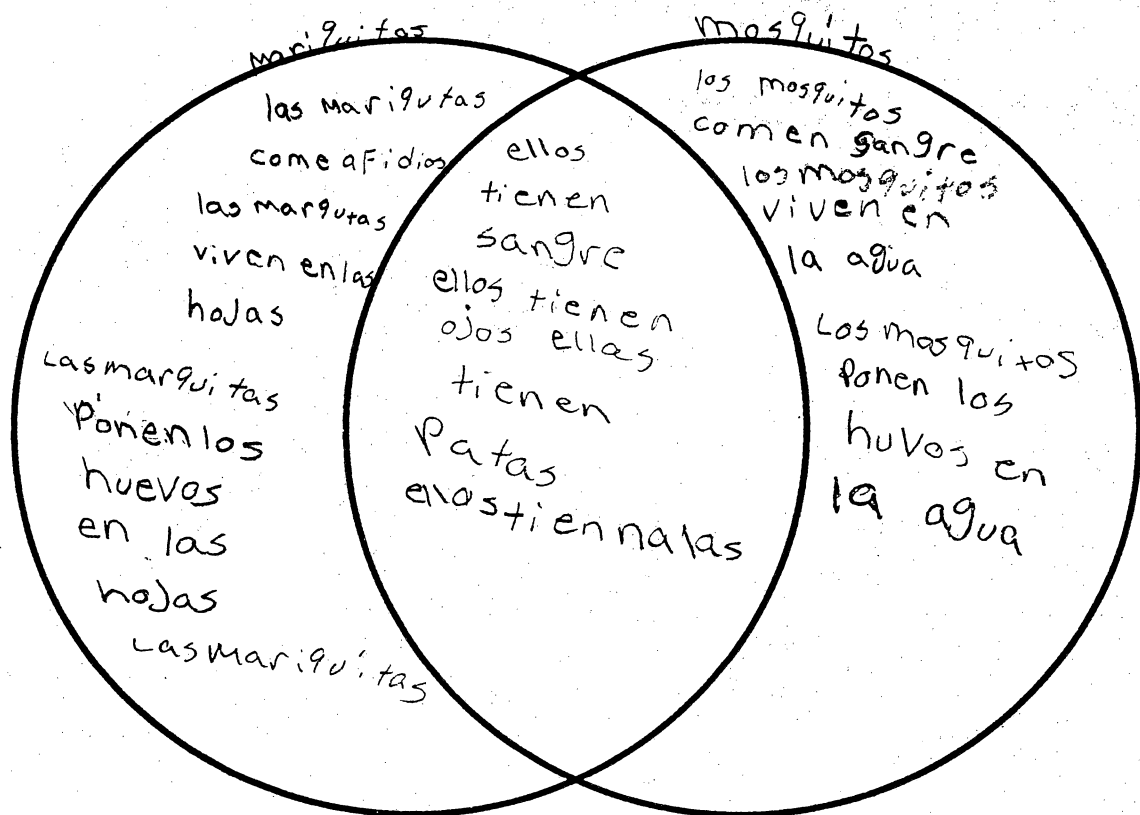 mariquitos
las mariqutas
come afidios
las marqutas
viven en las
hojas
Las marquitas
Ponen los
huevos
en las
hojas
Las mariquitas
ellos
tienen
sangre
ellos tienen
ojos ellas
tienen
Patas
ellos tiennalas
mosquitos
los mosquitos
comen sangre
los mosquitos
viven en
la agua
Los mosquitos
Ponen los
huvos en
la agua